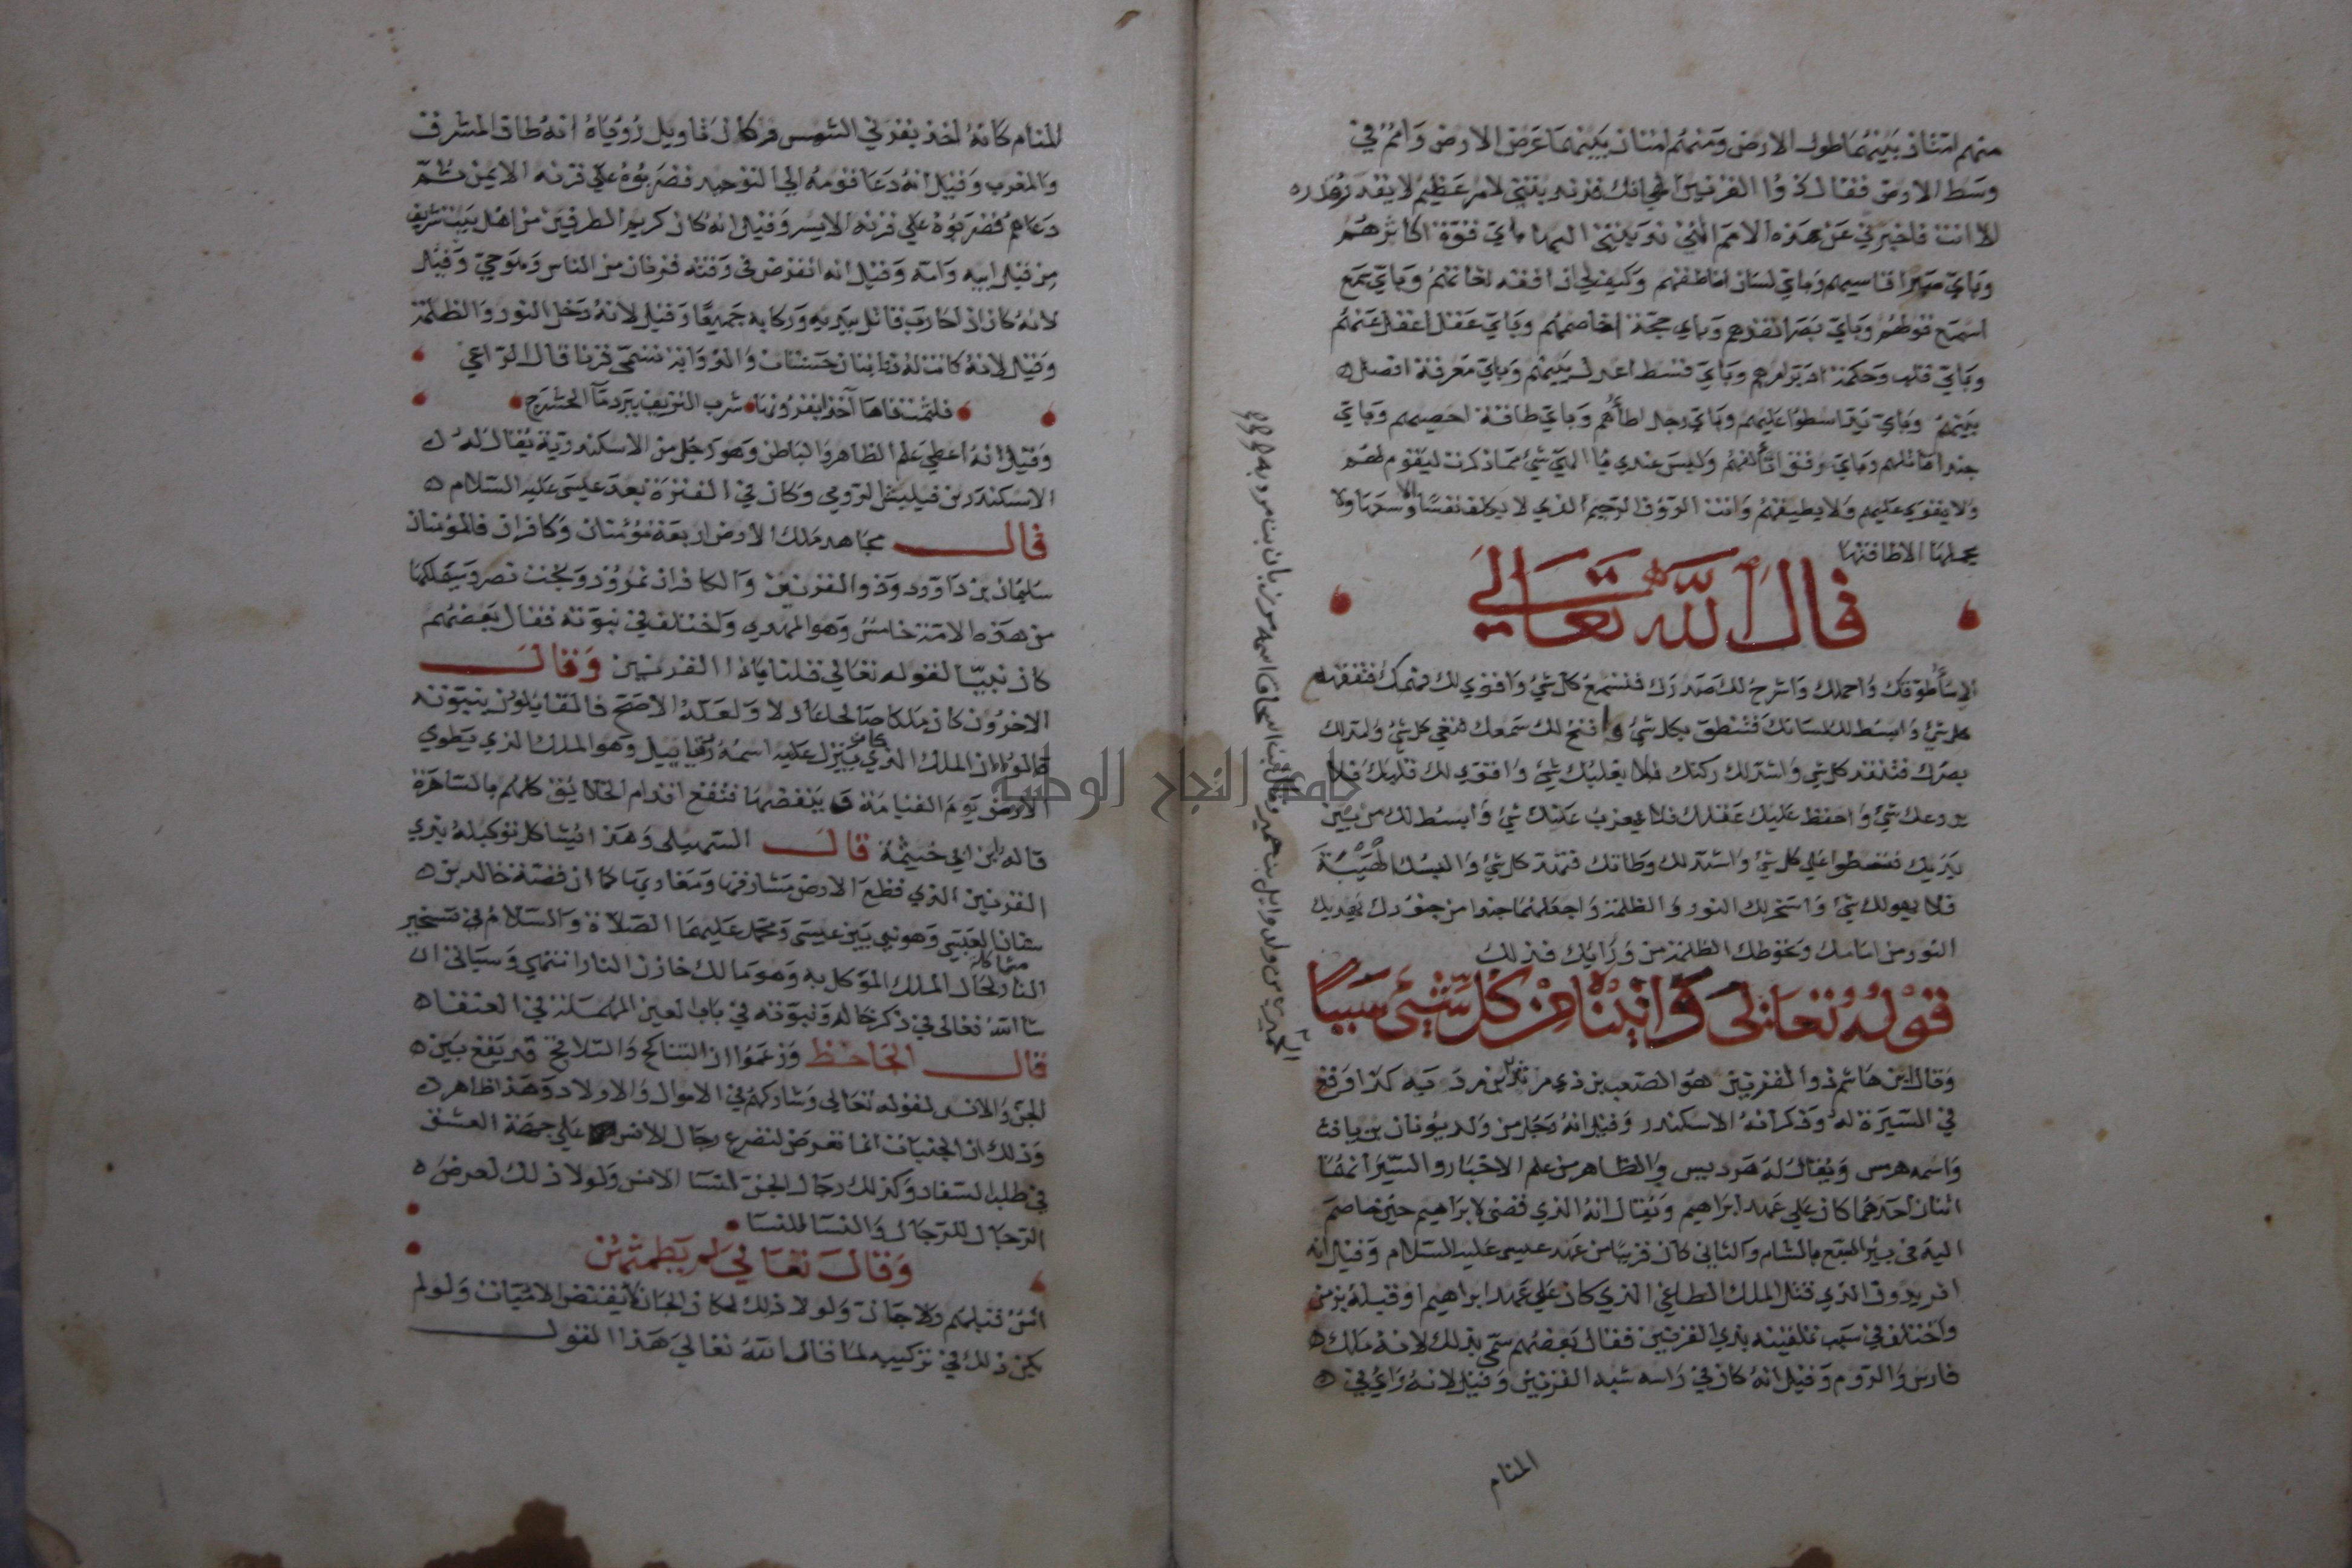 منهم امتان بينهما طول الارض ومنهم امتان بينهما عرض الارض وامم في
وسط الارض فقال ذوا القرنين الهي انك قد ندبتني لامر عظيم لا يقدر قدره
الا انت فاخبرني عن هذه الامم التي ندبتني اليها باي قوة اكاثرهم
وباي صبرا قاسيهم وباي لسان اناطقهم وكيف لي ان افقه لغاتهم وباي سمع
اسمع قولهم وباي بصر انقدهم وباي حجة اخاصمهم وباي عقل اعقل عنهم
وباي قلب وحكمة ادبر امرهم وباي قسط اعدل بينهم وباي معرفة افصل
بينهم وباي يد اسطوا عليهم وباي رجل اطأهم وباي طاقة احصيهم وباي
جند اقاتلهم وباي رفق اتألفهم وليس عندي يا الهي شي مما ذكرت ليقوم لهم
ولا يقوي عليهم ولا يطيقهم وانت الرؤف الرحيم الذي لا يكلف نفسا الا وسعها ولا
يحملها الا طاقتها
قال الله تعالي
اني ساطوقك واحملك واشرح لك صدرك فتسمع كل شي واقوي لك فهمك فتفقه
كل شي وابسط لك لسانك فتنطق بكل شي وافتح لك سمعك فتعي كل شي وامد لك
بصرك فتنفد كل شي واشد لك ركنك فلا يغلبك شي واقوي لك قلبك فلا
يروعك شي واحفظ عليك عقلك فلا يعزب عنك شي وابسط لك من بين
يديك فتسطوا علي كل شي واشد لك وطاتك فتهد كل شي والبسك الهيبة
فلا يهولك شي واسخر لك النور والظلمة واجعلهما جندا من جنودك يهديك
النور من امامك وتحوطك الظلمة من ورايك فذلك
قوله تعالى وآتيناه من كل شيئ سببا
وقال ابن هاشم ذوا القرنين هو الصعب بن ذي مرثد كذا وقع
في السيرة له وذكر انه الاسكندر وقيل انه رجل من ولد يونان بن يافث
واسمه هرمس ويقال له هرديس والظاهر من علم الاخبار والسير انهما
اثنان احدهما كان علي عهد ابراهيم ويقال انه الذي قضى لابراهيم حين خاصم
اليه في بير السبع بالشام والثاني كان قريبا من عهد عيسى عليه السلام وقيل انه
افريدون الذي قتل الملك الطاغي الذي كان علي عهد ابراهيم او قبله بزمن
واختلف في سبب تلقيبه بذي القرنين فقال بعضهم سمي بذلك لانه ملك
فارس والروم وقيل انه كان في راسه شبه القرنين وقيل لانه راي في
المنام
وقال اسحاق اسمه مرزبان بن مردبه
الحميري من ولد وايل بن حمير
المنام كانه اخذ بقرني الشمس فكان تاويل روياه انه طاف المشرق
والمغرب وقيل انه دعا قومه الي التوحيد فضربوه علي قرنه الايمن ثم
دعاهم فضربوه علي قرنه الايسر وقيل انه كان كريم الطرفين من اهل بيت شريف
من قبل ابيه وامه وقيل انه انقرض في وقته قرنان من الناس وهو حي وقيل
لانه كان اذا حارب قاتل بيديه وركابه جميعا وقيل لانه دخل النور والظلمة
وقيل لانه كانت له ذوابتان حسنتان والذوابة تسمي قرنا قال الراعي
فلثمت فاها آخذا بقرونها شرب النزيف ببرد مآ الحشرج
وقيل انه اعطي علم الظاهر والباطن وهو رجل من الاسكندرية يقال له
الاسكندر بن فيليش الرومي وكان في الفترة بعد عيسى عليه السلام
قال مجاهد ملك الارض اربعة مؤمنان وكافران فالمؤمنان
سليمان بن داوود وذو القرنين والكافران نمروذ وبخت نصر وسيملكها
من هذه الامة خامس وهو المهدي واختلف في نبوته فقال بعضهم
كان نبيا لقوله تعالي قلنا ياذا القرنين وقال
الاخرون كان ملكا صالحا عادلا ولعله الاصح فالقايلون بنبوته
قالوا ان الملك الذي كان ينزل عليه اسمه رقيابيل وهو الملك الذي يطوي
الارض يوم القيامة وينفضها فتقع اقدام الخلايق كلهم بالساهرة
قاله ابن ابي خيثمة قال السهيلي وهذا يشاكل توكيله بذي
القرنين الذي قطع الارض مشارقها ومغاربها كما ان قصة خالد بن
سنان العبسي وهو نبي بين عيسى ومحمد عليهما الصلاة والسلام في تسخير
النار له مشاكلة لحال الملك الموكل به وهو مالك خازن النار انتهاي وسياتي ان
شا الله تعالى في ذكر خالد ونبوته في باب العين المهملة في العنقا
قال الجاحظ وزعموا ان التناكح والتلاقح قد يقع بين
الجن والانس لقوله تعالى وشاركهم في الاموال والاولاد وهذا ظاهر
وذلك ان الجنيات انما تعرض لتصرع رجال الانس علي جهة العشق
في طلب السفاد وكذلك رجال الجن لنسا الانس ولولا ذلك لعرض
الرجال للرجال والنسا للنسا
وقال تعالي لم يطمثهن
انس قبلهم ولا جان ولولا ذلك لو كان الجان لا يفتض الادميات ولو لم
يكن ذلك في تركيبه لما قال الله تعالي هذا القول
جامعة النجاح الوطنية